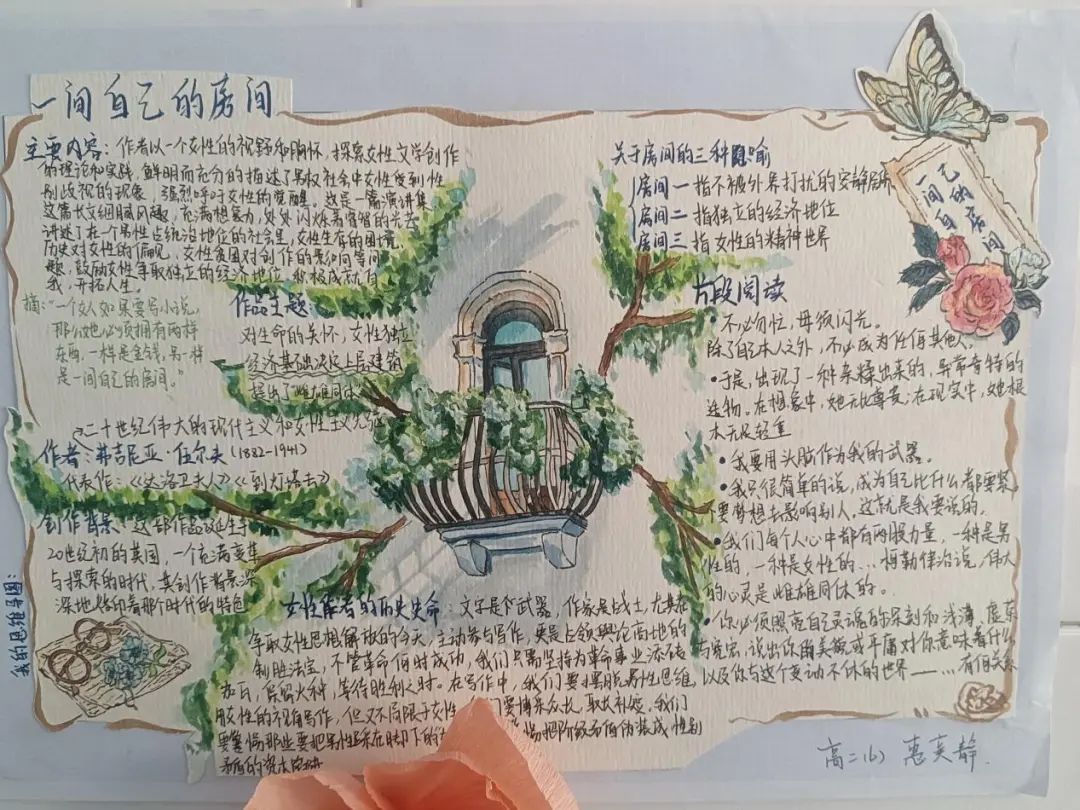 一间自己的房间
主要内容：作者以一个女性的视野和胸怀，探索女性文学创作
的理论和实践，鲜明而充分的描述了男权社会中女性受到性
别歧视的现象，强烈呼吁女性的觉醒。这是一篇演讲集
这篇长文细腻风趣，充满想象力，处处闪烁着智慧的光芒
讲述了在一个男性占统治地位的社会里，女性生存的困境
历史对女性的偏见，女性贫困对创作的影响等问
题，鼓励女性争取独立的经济地位，积极成就自
我，开拓人生。
摘："一个女人如果要写小说，
那么她必须拥有两样
东西，一样是金钱，另一样
是一间自己的房间。"
作品主题
对生命的关怀，女性独立
经济基础决定上层建筑
提出了雌雄同体
二十世纪伟大的现代主义和女性主义先
作者：弗吉尼亚·伍尔夫（1882-1941）
代表作：《达洛卫夫人》《到灯塔去》
创作背景：这部作品诞生于
20世纪初的英国，一个充满变革
与探索的时代，其创作背景深
深地烙印着那个时代的特色
女性作者的历史使命：文字是武器，作家是战士，尤其在
争取女性思想解放的今天，主动参与写作，更是占领舆论高地的
制胜法宝，不管革命何时成功，我们只需坚持为革命事业添砖
加瓦，保留火种，等待胜利之时。在写作中，我们要摆脱男性思维，
用女性的视角写作，但又不局限于女性，们要博采众长，取长补短，我们
要警惕那些要把男性踩在脚下的 警惕把阶级矛盾伪装成性别
矛盾的资本
关于房间的三种隐喻
房间一 指不被外界打扰的安静居所
房间二 指独立的经济地位
房间三 指女性的精神世界
片段阅读
不必匆忙，毋须闪光。
除了自己本人之外，不必成为任何其他人。
•于是，出现了一种杂糅出来的，异常奇特的
造物。在想象中，她无比尊贵；在现实中，她根
本无足轻重
•我要用头脑作为我的武器。
•我只很简单的说，成为自己比什么都要紧，
要梦想去影响别人，这就是我要说的。
•我们每个人心中都有两股力量，一种是男
性的，一种是女性的…柯勒律治说，伟人
的心灵是雌雄同体的。
•你必须照亮自己灵魂的深刻和浅薄，虚荣
与宽宏，说出你的美貌或平庸对你意味着什么
以及你与这个变动不休的世界——…有何关系
一间
自己的
房间
高二(6) 惠奕静